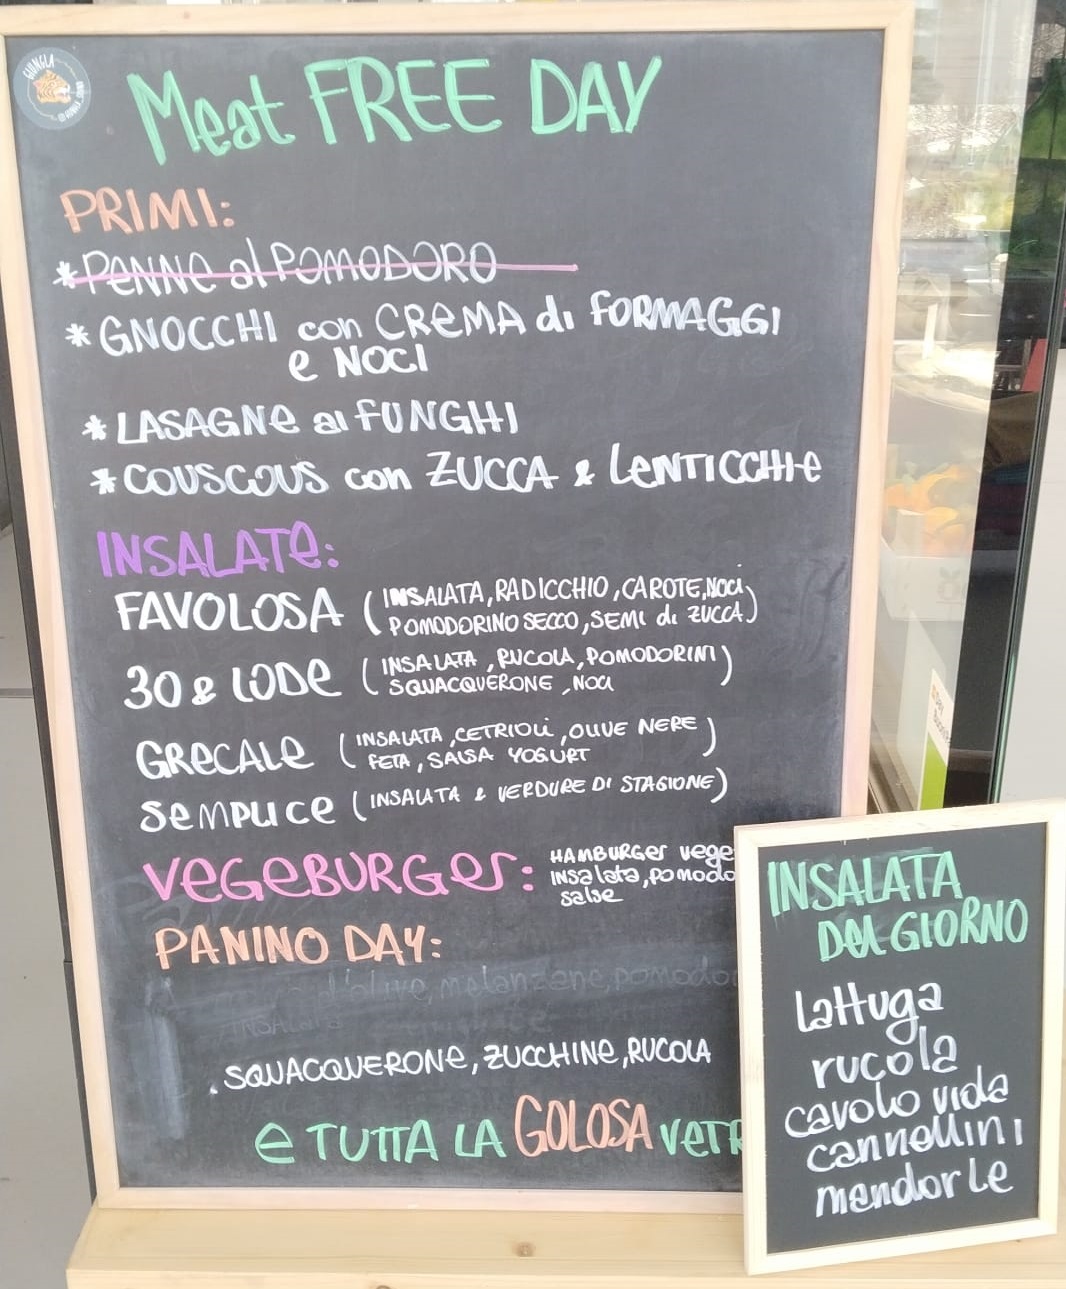 GIUNGLA
Meat FREE DAY
PRIMI:
* PENNE al POMODORO
* GNOCCHI con CREMA di FORMAGGI
e NOCI
* LASAGNE ai FUNGHI
* COUSCOUS con ZUCCA & LENTICCHIE
INSALATE:
FAVOLOSA (INSALATA, RADICCHIO, CAROTE, NOCI,
POMODORINO SECCO, SEMI di ZUCCA)
30 & LODE (INSALATA, RUCOLA, POMODORINI
SQUACQUERONE, NOCI)
GRECALE (INSALATA, CETRIOLI, OLIVE NERE
FETA, SALSA YOGURT)
SEMPLICE (INSALATA & VERDURE DI STAGIONE)
VEGEBURGER: HAMBURGER vege
insalata, pomodo
salse
PANINO DAY:
d'olive, melanzane, pomodor
. SQUACQUERONE, ZUCCHINE, RUCOLA
e TUTTA LA GOLOSA VETR
INSALATA
DEL GIORNO
lattuga
rucola
cavolo vida
cannellini
mandorle